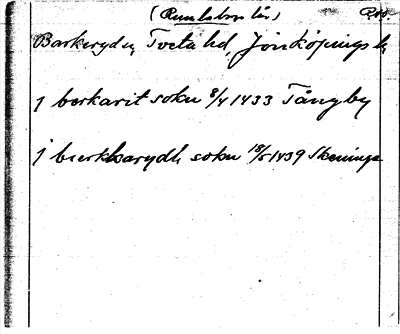 (Rumlaborgs län) Ross.
Barkeryd sn, Tveta hd, Jönköpings l.
j berkarit sokn 8/4 1433 Tångby
j bierkkarydh sokn 18/5 1439 Skeninge